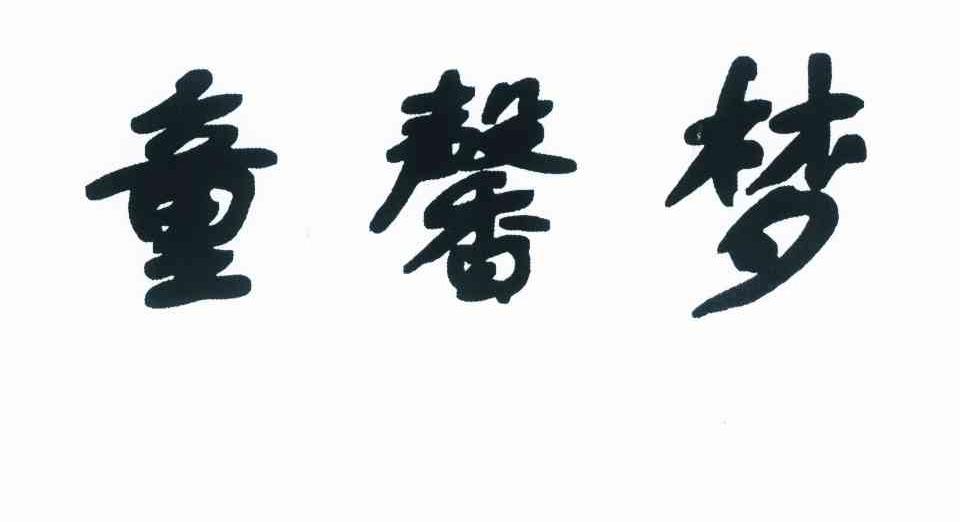 童馨梦